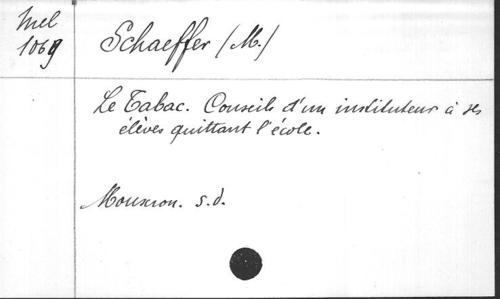 Mel
1069
Schaeffer (M.)
Le Tabac. Conseils d'un instituteur à ses
élèves quittant l'école.
Mouscron. s.d.